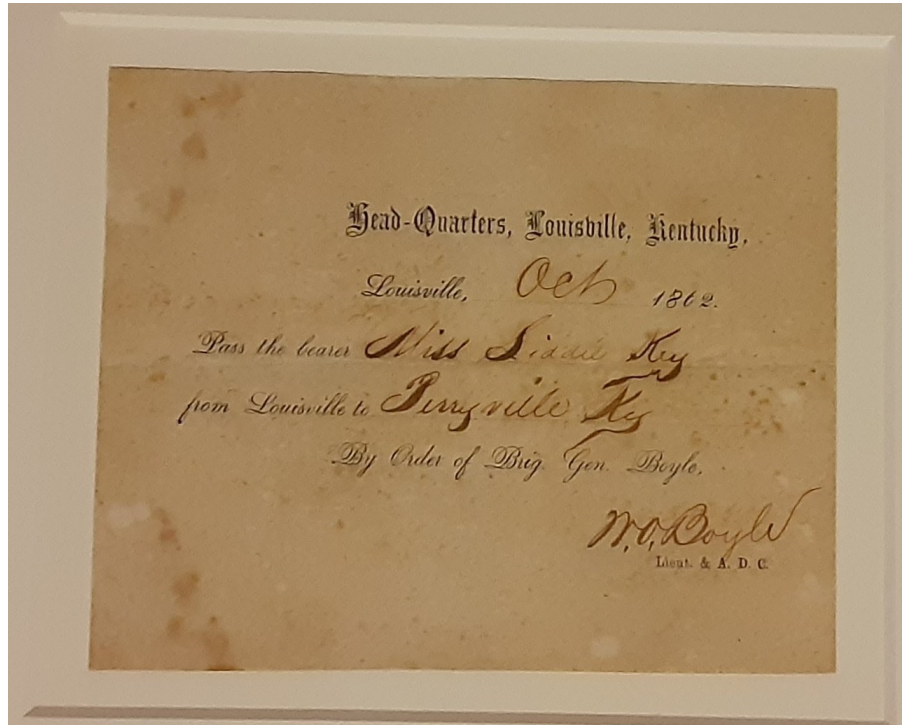 Head-Quarters, Louisville, Kentucky,
Louisville, Oct 1862.
Pass the bearer Miss Liddie Key
from Louisville to Perryville Ky
By Order of Brig. Gen. Boyle,
W.O. Boyle
Lieut. & A. D. C.